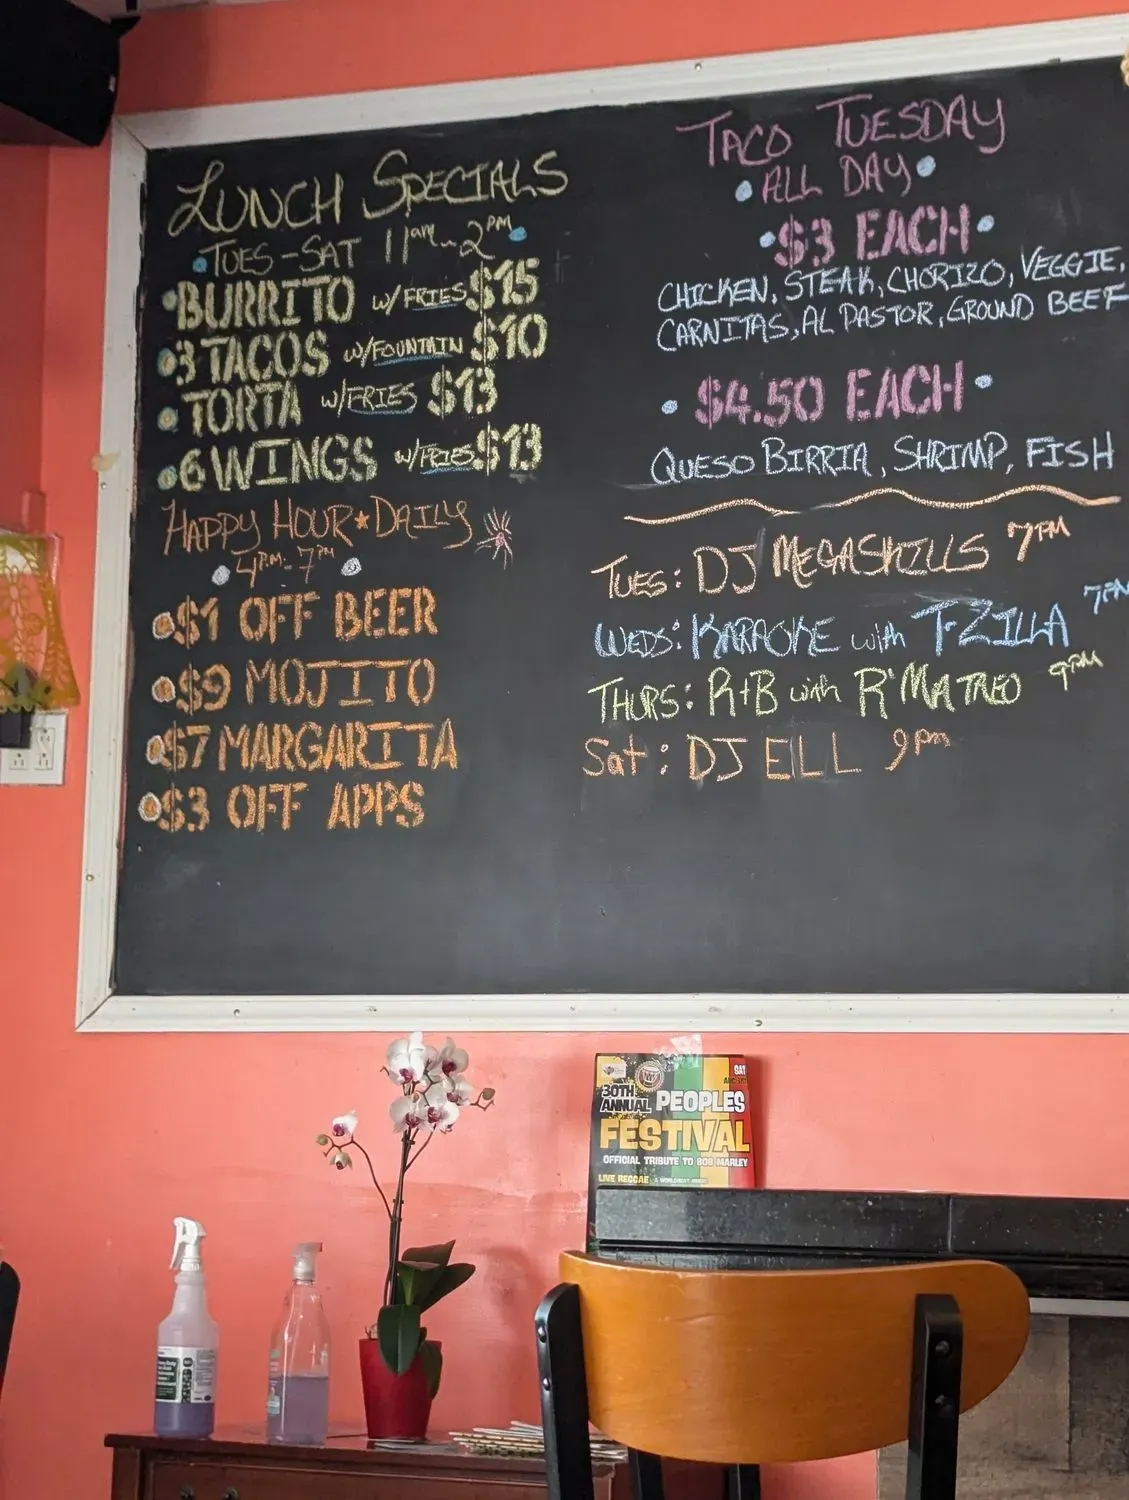 LUNCH SPECIALS
TUES-SAT 11am-2PM
BURRITO w/FRIES $15
3 TACOS w/FOUNTAIN $10
TORTA w/FRIES $13
6 WINGS w/FRIES $13
HAPPY HOUR★DAILY
4P.M.-7PM
$1 OFF BEER
$9 MOJITO
$7 MARGARITA
$3 OFF APPS
TACO TUESDAY
ALL DAY
$3 EACH
CHICKEN, STEAK, CHORIZO, VEGGIE,
CARNITAS, AL PASTOR, GROUND BEEF
$4.50 EACH
QUESO BIRRIA, SHRIMP, FISH
TUES: DJ MEGASKILLS 7PM
WEDS: KARAOKE with T-ZILLA 7PM
THURS: R+B with R'MATREO 9PM
Sat: DJ ELL 9pm
30TH
ANNUAL PEOPLES
SAT
FESTIVAL
OFFICIAL TRIBUTE TO BOB MARLEY
LIVE REGGAE & WORLDBEAT MUSIC